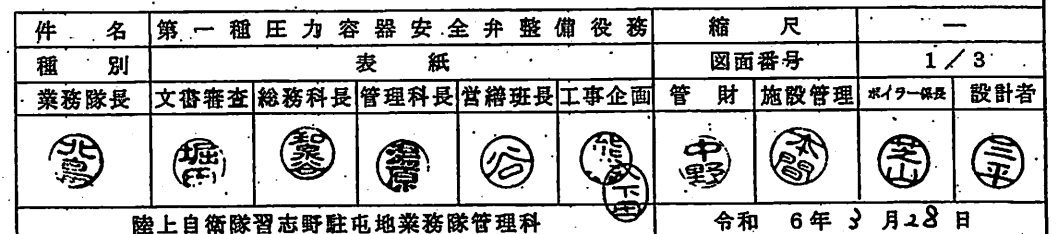 件名 第一種圧力容器安全弁整備役務 縮尺 ―
種別 表紙 図面番号 1/3
業務隊長 文書審査 総務科長 管理科長 営繕班長 工事企画 管財 施設管理 ボイラー係長 設計者
北島 堀田 公 中野 本間 芝山 三平
陸上自衛隊習志野駐屯地業務隊管理科 令和 6年 3月28日